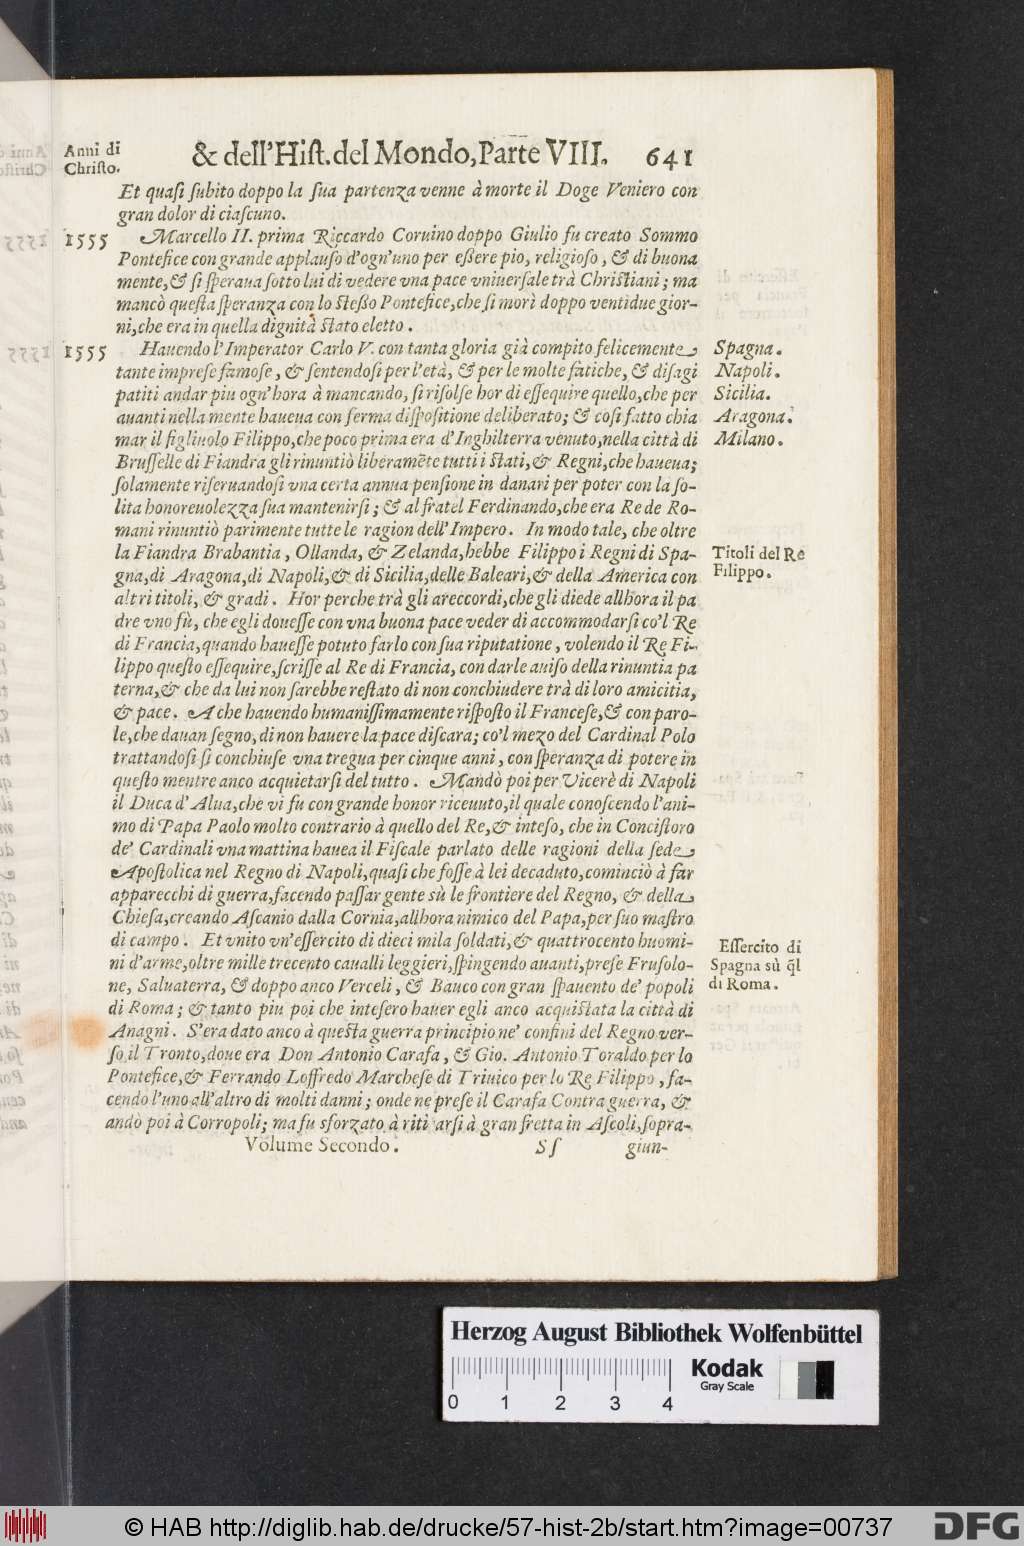 Anni di
Christo.
& dell'Hiſt. del Mondo, Parte VIII. 641
Et quaſi ſubito doppo la ſua partenza venne à morte il Doge Veniero con
gran dolor di ciaſcuno.
1555 Marcello II. prima Riccardo Coruino doppo Giulio fu creato Sommo
Pontefice con grande applauſo d'ogn'uno per eßere pio, religioſo, & di buona
mente, & ſi ſperaua ſotto lui di vedere vna pace vniuerſale trà Chriſtiani; ma
mancò queſta ſperanza con lo ſteßo Pontefice, che ſi morì doppo ventidue gior-
ni, che era in quella dignità ſtato eletto.
1555 Hauendo l'Imperator Carlo V. con tanta gloria già compito felicemente
tante impreſe famoſe, & ſentendoſi per l'età, & per le molte fatiche, & diſagi
patiti andar piu ogn'hora à mancando, ſi riſolſe hor di eſſequire quello, che per
auanti nella mente haueua con ferma diſpoſitione deliberato; & coſi fatto chia
mar il figliuolo Filippo, che poco prima era d'Inghilterra venuto, nella città di
Bruſſelle di Fiandra gli rinuntiò liberamẽte tutti i ſtati, & Regni, che haueua;
ſolamente riſeruandoſi vna certa annua penſione in danari per poter con la ſo-
lita honoreuolezza ſua mantenirſi; & al fratel Ferdinando, che era Re de Ro-
mani rinuntiò parimente tutte le ragion dell'Impero. In modo tale, che oltre
la Fiandra Brabantia, Ollanda, & Zelanda, hebbe Filippo i Regni di Spa-
gna, di Aragona, di Napoli, & di Sicilia, delle Baleari, & della America con
altri titoli, & gradi. Hor perche trà gli areccordi, che gli diede allhora il pa
dre vno fù, che egli doueſſe con vna buona pace veder di accommodarſi co'l Re
di Francia, quando haueſſe potuto farlo con ſua riputatione, volendo il Re Fi-
lippo queſto eſſequire, ſcriſſe al Re di Francia, con darle auiſo della rinuntia pa
terna, & che da lui non ſarebbe reſtato di non conchiudere trà di loro amicitia,
& pace. A che hauendo humaniſſimamente riſpoſto il Franceſe, & con paro-
le, che dauan ſegno, di non hauere la pace diſcara; co'l mezo del Cardinal Polo
trattandoſi ſi conchiuſe vna tregua per cinque anni, con ſperanza di potere in
queſto mentre anco acquietarſi del tutto. Mandò poi per Vicerè di Napoli
il Duca d'Alua, che vi fu con grande honor riceuuto, il quale conoſcendo l'ani-
mo di Papa Paolo molto contrario à quello del Re, & inteſo, che in Conciſtoro
de' Cardinali vna mattina hauea il Fiſcale parlato delle ragioni della ſede
Apoſtolica nel Regno di Napoli, quaſi che foſſe à lei decaduto, cominciò à far
apparecchi di guerra, facendo paſſar gente sù le frontiere del Regno, & della
Chieſa, creando Aſcanio dalla Cornia, allhora nimico del Papa, per ſuo maſtro
di campo. Et vnito vn'eſſercito di dieci mila ſoldati, & quattrocento huomi-
ni d'arme, oltre mille trecento caualli leggieri, ſpingendo auanti, preſe Fruſolo-
ne, Saluaterra, & doppo anco Verceli, & Bauco con gran ſpauento de' popoli
di Roma; & tanto piu poi che inteſero hauer egli anco acquiſtata la città di
Anagni. S'era dato anco à queſta guerra principio ne' confini del Regno ver-
ſo il Tronto, doue era Don Antonio Carafa, & Gio. Antonio Toraldo per lo
Pontefice, & Ferrando Loffredo Marcheſe di Triuico per lo Re Filippo, fa-
cendo l'uno all'altro di molti danni; onde ne preſe il Carafa Contra guerra, &
andò poi à Corropoli; ma fu sforzato à ritirarſi à gran fretta in Aſcoli, ſopra-
Volume Secondo. Sſ giun-
Spagna.
Napoli.
Sicilia.
Aragona.
Milano.
Titoli del Re
Filippo.
Eſſercito di
Spagna sù q̃l
di Roma.
Herzog August Bibliothek Wolfenbüttel
0 1 2 3 4
Kodak
Gray Scale
© HAB http://diglib.hab.de/drucke/57-hist-2b/start.htm?image=00737
DFG